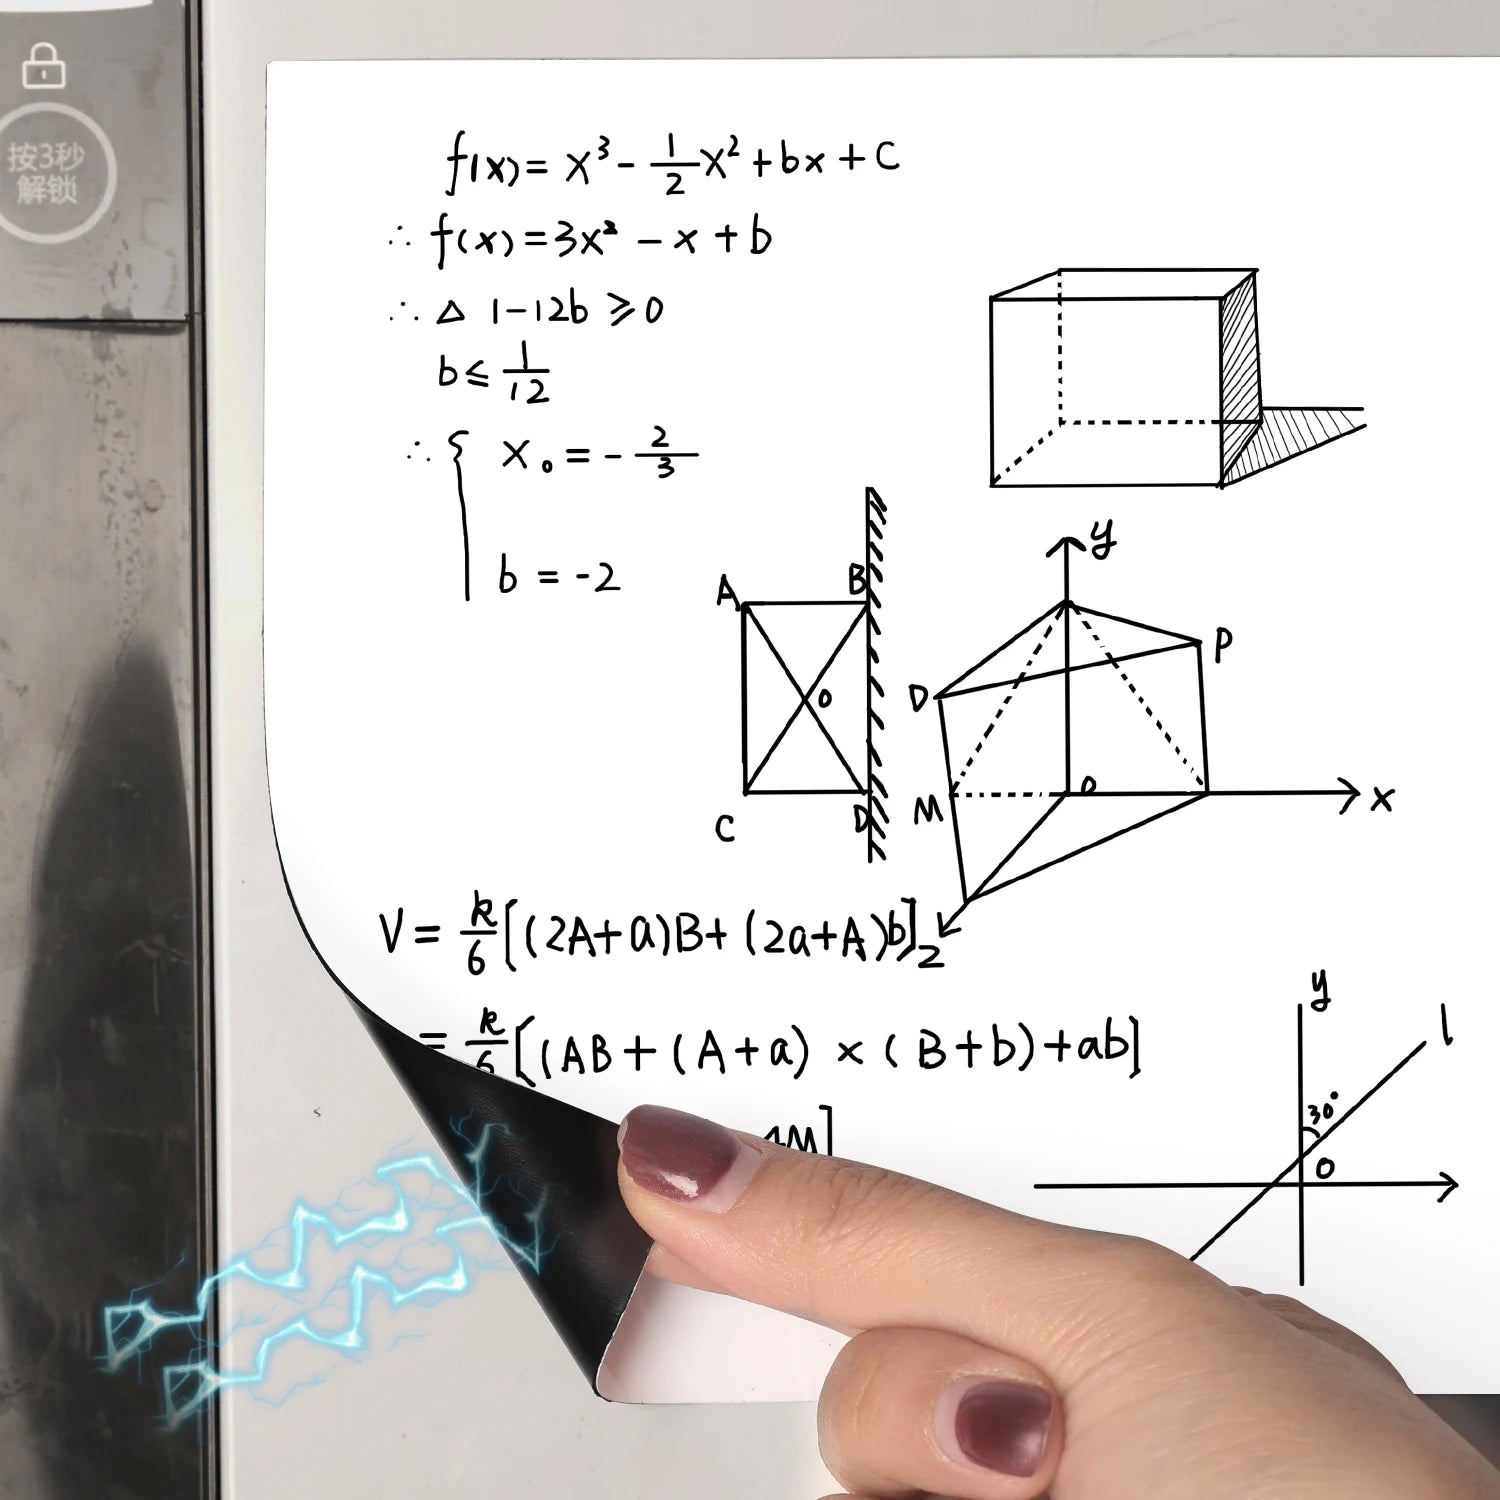 按3秒
解锁
f(x) = x³ - 1/2 x² + bx + c
∴ f(x) = 3x² - x + b
∴ △ 1-12b ≥ 0
b ≤ 1/12
∴ { x₀ = - 2/3
b = -2
A B
O
C D
y
P
D
M O x
z
V = k/6 [(2A+a)B+(2a+A)b]
= k/6 [(AB+(A+a)×(B+b)+ab]
4M]
y
l
30°
O